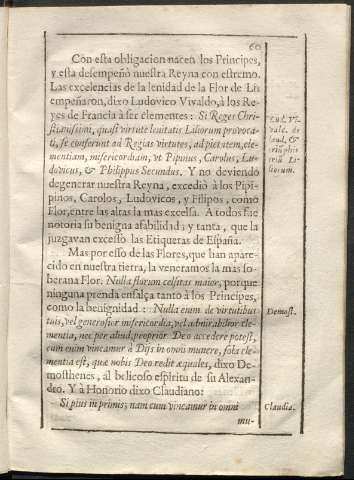 60
Con esta obligacion nacen los Principes,
y esta desempeñò nuestra Reyna con estremo.
Las excelencias de la lenidad de la Flor de Lis
empeñaron, dixo Ludovico Vivaldo, à los Re-
yes de Francia à ser clementes: Si Reges Chri-
stianissimi, quasi virtute lenitatis Liliorum provoca-
ti, se conferunt ad Regias virtutes, ad pietatem, cle-
mentiam, misericordiam, ut Pipinus, Carolus, Lu-
dovicus, & Philippus Secundus. Y no deviendo
degenerar nuestra Reyna, excediò à los Pipi-
pinos, Carolos, Ludovicos, y Filipos, como
Flor, entre las altas la mas excelsa. A todos fue
notoria su benigna afabilidad; y tanta, que la
juzgavan excesso las Etiquetas de España.
Mas por esso de las Flores, que han apare-
cido en nuestra tierra, la veneramos la mas so-
berana Flor. Nulla florum celsitas maior, porque
ninguna prenda ensalça tanto à los Principes,
como la benignidad: Nulla enim de virtutibus
tuis, vel generosior misericordia, vel admirabilior cle-
mentia, nec per aliud, proprior Deo accedere potest,
cum enim vincamur à Dijs in omni munere, sola cle-
mentia est, quæ nobis Deo redit æquales, dixo De-
mosthenes, al belicoso espiritu de su Alexan-
dro. Y à Honorio dixo Claudiano:
Si pius in primus; nam cum vincamur in omni
mu-
Lud. Vi-
vald. de
laud. &
triũphis
trium Li-
liorum.
Demost.
Claudia.